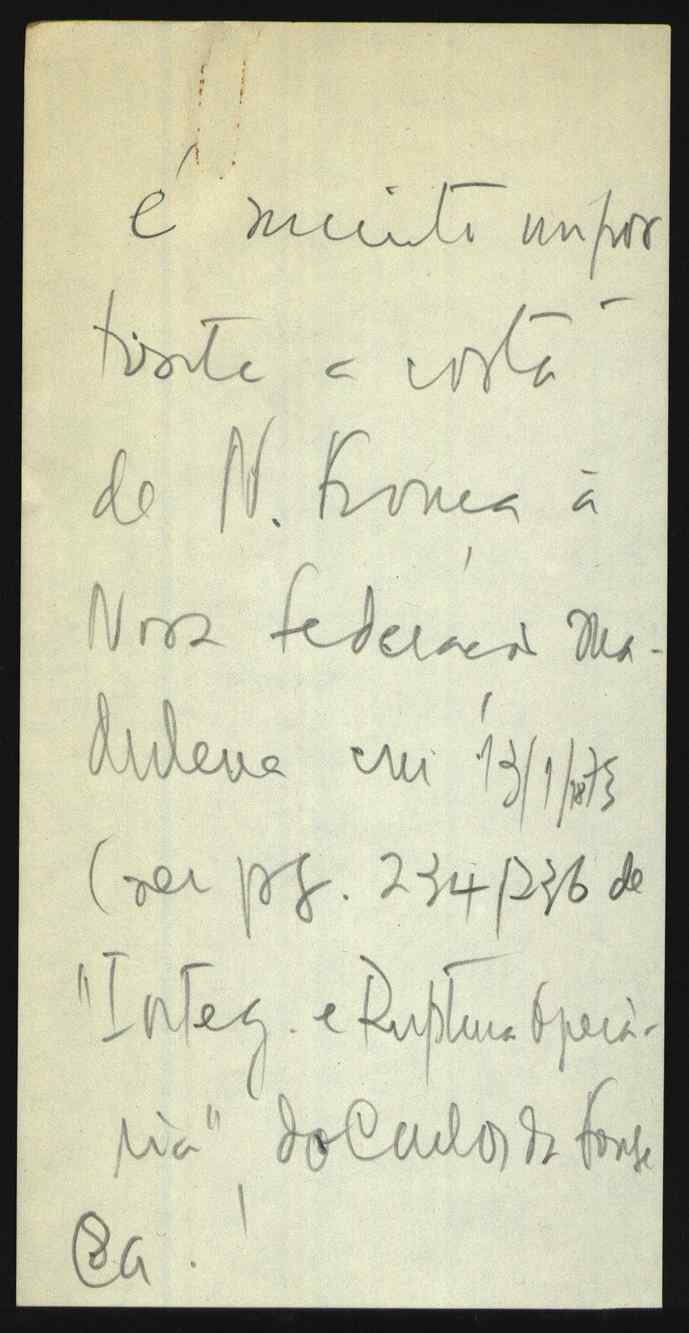 é muito impor
tante a carta
de N. França à
Nova Federación Ma-
drilena em 13/1/1873
(ver pg. 234/236 de
"Integ. e Ruptura Operá-
ria" do Carlos da Fonse
ca.